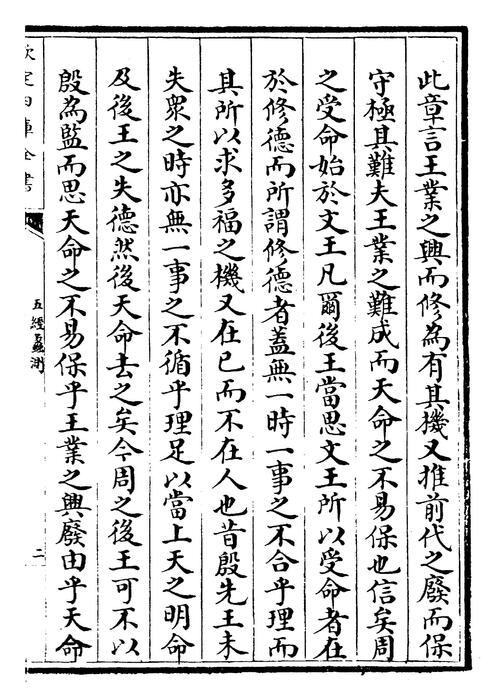 此章言王業之興而修為有其機又推前代之廢而保
守極其難夫王業之難成而天命之不易保也信矣周
之受命始於文王凡爾後王當思文王所以受命者在
於修德而所謂修德者蓋無一時一事之不合乎理而
其所以求多福之機又在已而不在人也昔殷先王未
失衆之時亦無一事之不循乎理足以當上天之明命
及後王之失德然後天命去之矣今周之後王可不以
殷為監而思天命之不易保乎王業之興廢由乎天命
欽定四庫全書
五經蠡測
二